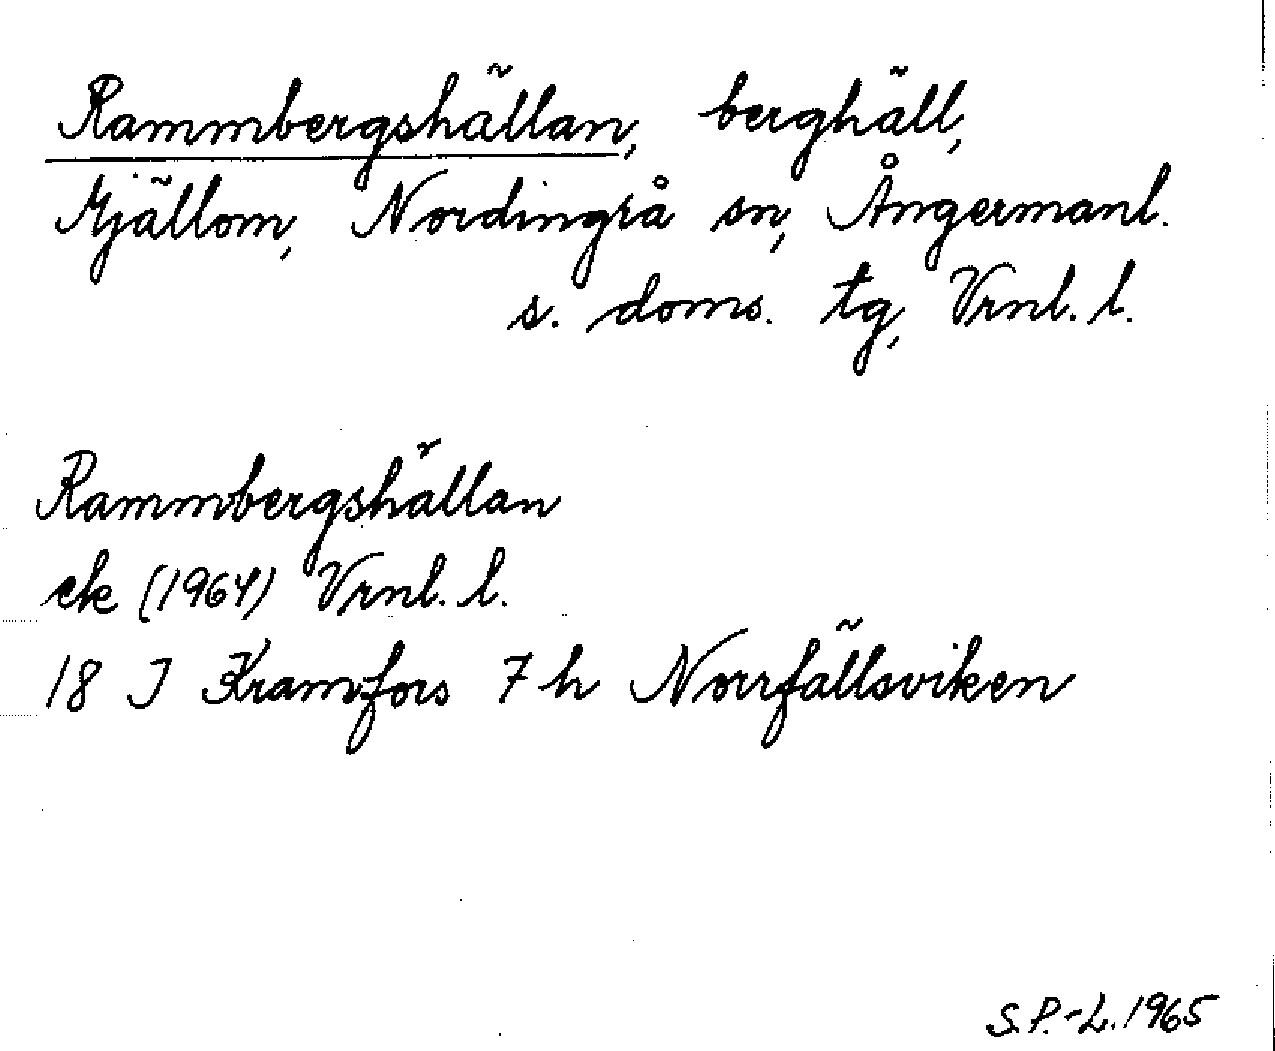 Rammbergshällan, berghäll,
Mjällom, Nordingrå sn, Ångermanl.
s. doms. tg, Vrnl. l.
Rammbergshällan
ek (1964) Vrnl. l.
18 J Kramfors 7 h Norrfällsviken
S.P.-L. 1965